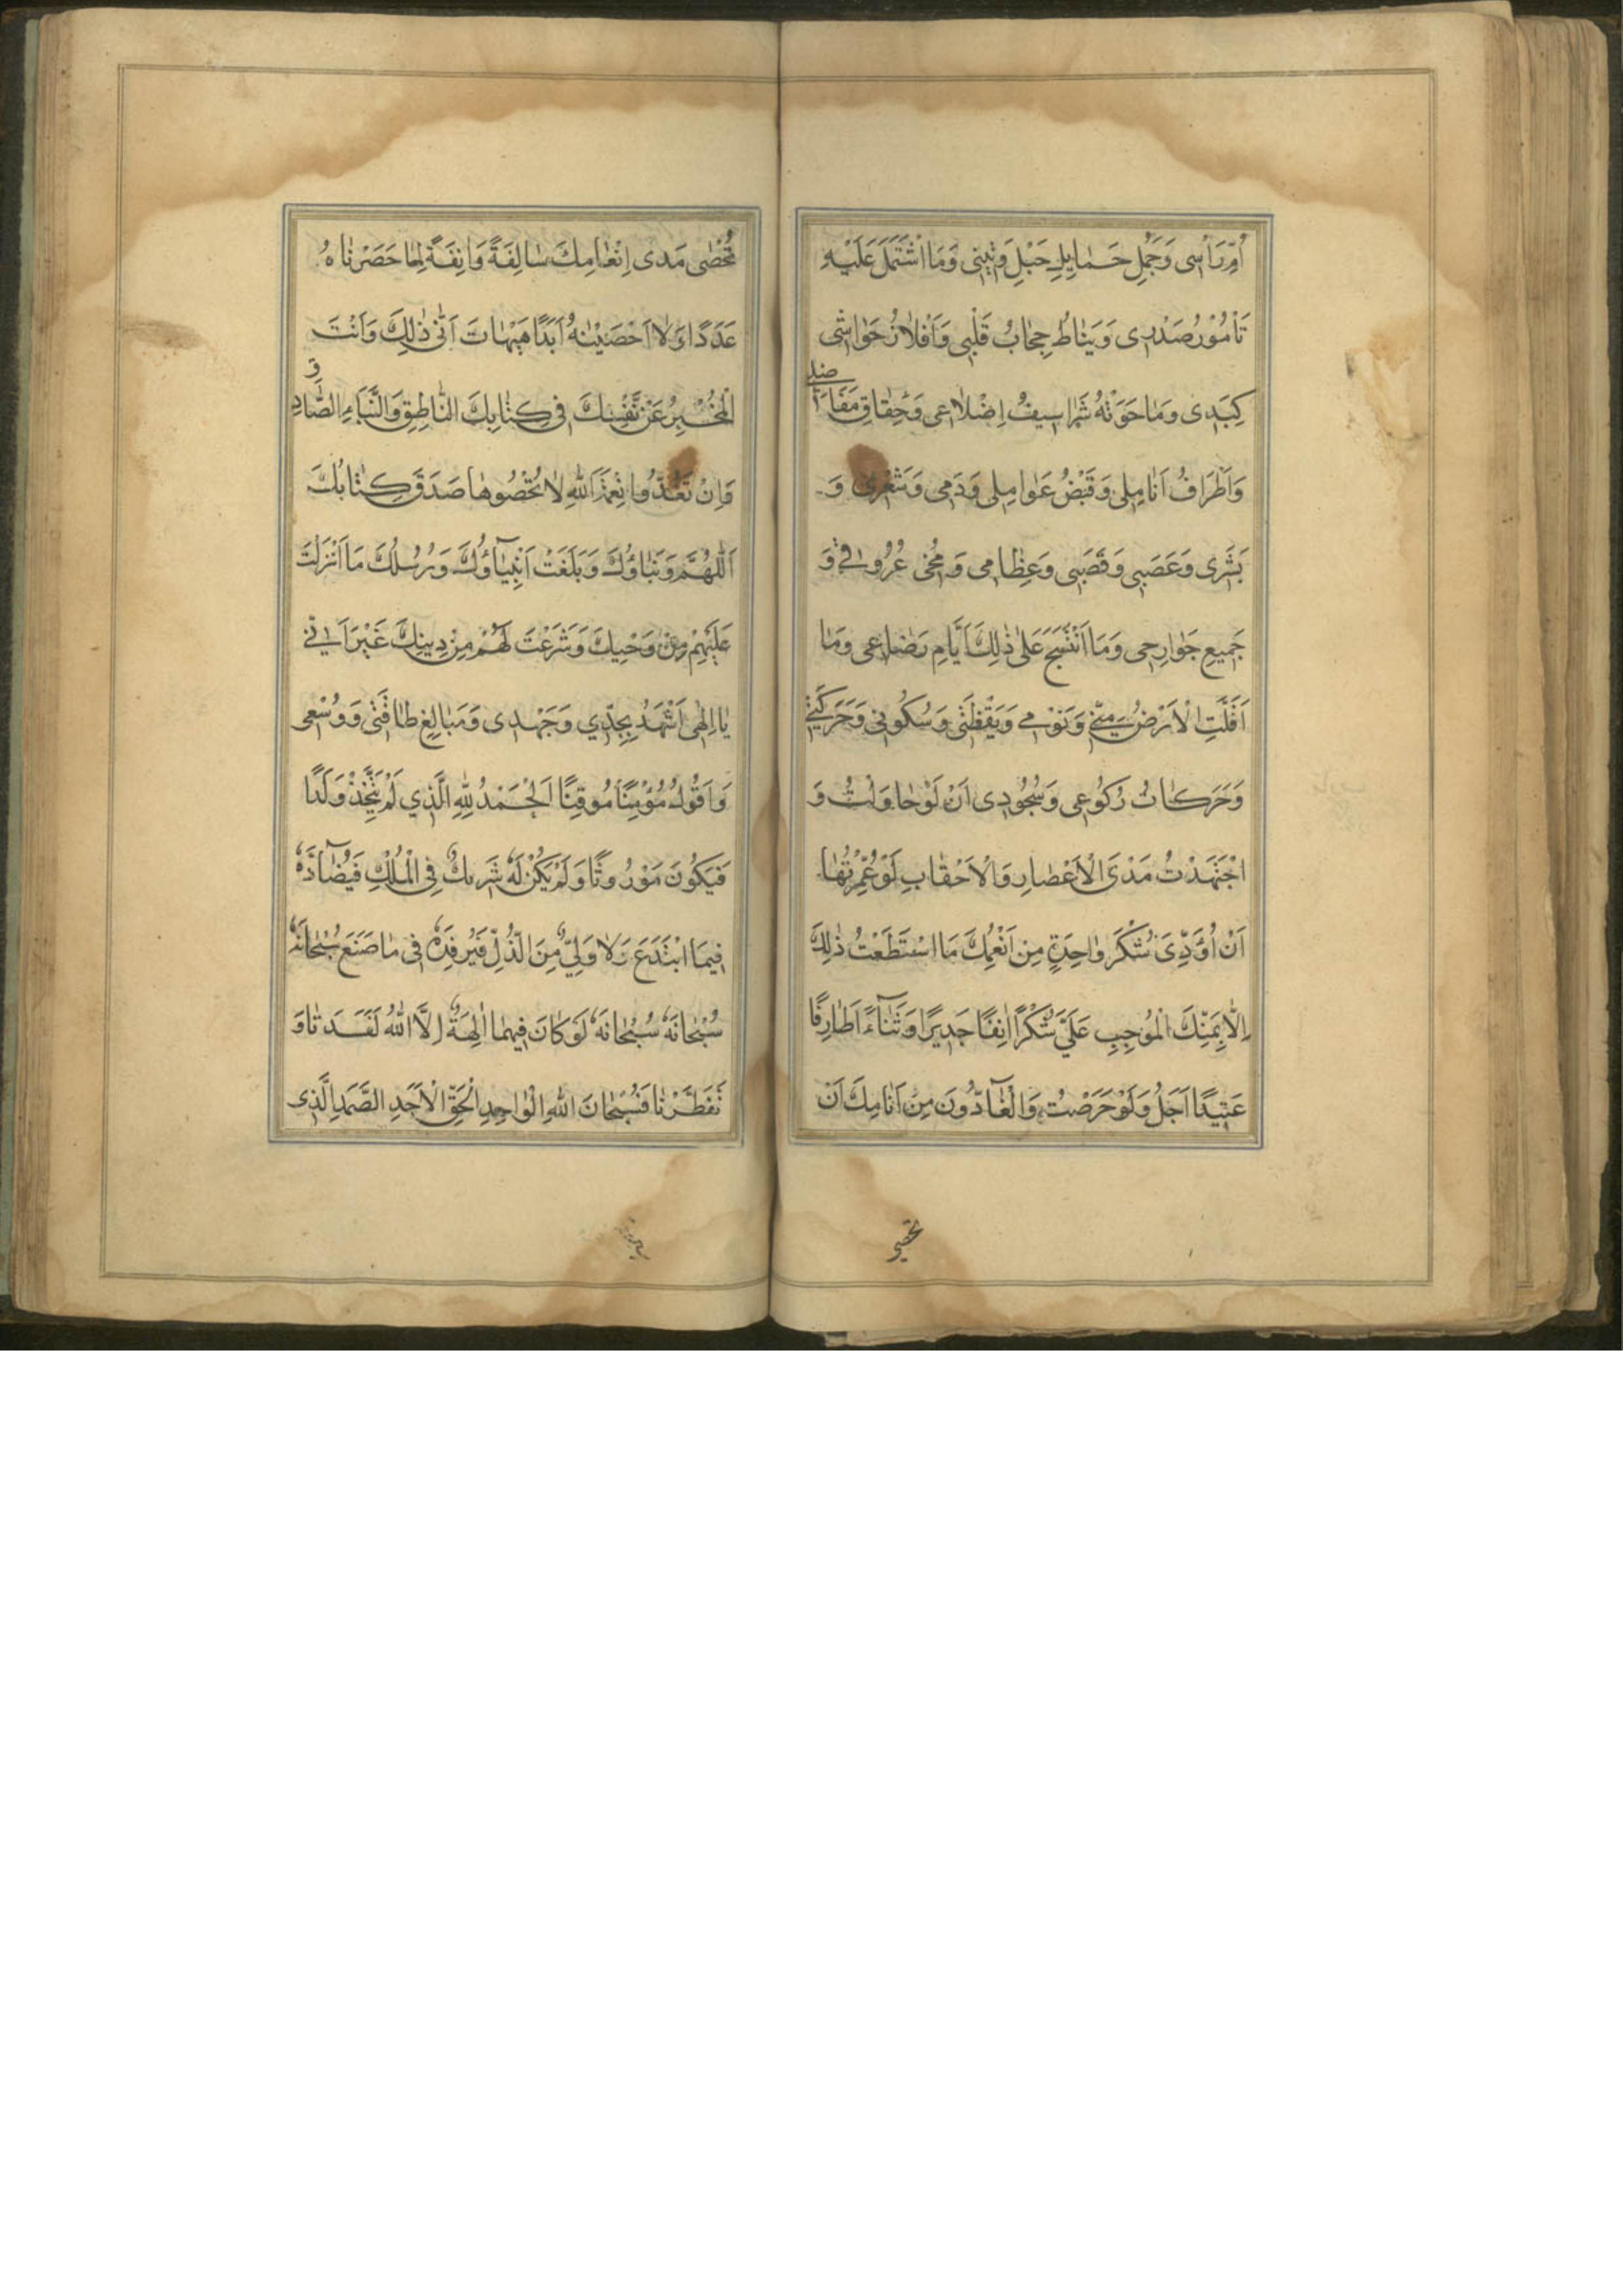 اُمِّ رَاْسی وَجُمَلِ حَمٰایِلِ حَبْلِ وَتینی وَمَا اشْتَمَلَ عَلَیْهِ
تٰامُوْرُ صَدْری وَ نِیٰاطُ حِجٰابُ قَلْبی وَ اَفْلاٰذُ حَوٰاشی
کَبِدی وَمٰا حَوَتْهُ شَرٰاسیفُ اِضْلاٰعی وَحِقٰاقِ مَفٰا
صِلی
وَاَطْرٰافُ اَنٰامِلی وَقَبْضُ عَوٰامِلی وَدَمی وَشَعْری وَ
بَشَری وَعَصَبی وَقَصَبی وَعِظٰامی وَ مُخّی عُرُوقی وَ
جَمیعِ جَوٰارِحی وَمَا انْتَسَجَ عَلٰی ذٰلِكَ اَیّٰامِ رَضٰاعی وَمٰا
اَقَلَّتِ الْاَرْضُ مِنّی وَنَوْمی وَیَقْظَتی وَسُکُونی وَحَرَکَتی
وَحَرَکٰاتُ رُکُوعی وَسُجُودی اَنْ لَوْحٰاوَلْتُ وَ
اجْتَهَدْتُ مَدَی الْاَعْصٰارِ وَالْاَحْقٰابِ لَوْعُمِّرْتُهٰا
اَنْ اُؤَدِّیَ شُکْرَ وٰاحِدَةٍ مِنْ اَنْعُمِكَ مَا اسْتَطَعْتُ ذٰلِكَ
اِلاّٰ بِمَنِّكَ الْمُوجِبِ عَلَیَّ شُکْرًا اٰنِفًا جَدیرًا وَثَنٰاءً طٰارِفًا
عَتیدًا اَجَلْ وَلَوْ حَرَصْتُ وَالْعٰآدُّونَ مِنْ اَنٰامِكَ اَنْ
تحصی
تُحْصٰی مَدٰی اِنْعٰامِكَ سٰالِفَةً وَاٰنِفَةً لِمٰا حَصَرْنٰاهُ
عَدَدًا وَلاٰ اَحْصَیْنٰهُ اَبَدًا هَیْهٰاتَ اَنّٰی ذٰلِكَ وَاَنْتَ
الْمُخْبِرُ عَنْ نَفْسِكَ فی کِتٰابِكَ النّٰاطِقِ وَالنَّبَاءِ الصّٰادِ
قِ
وَاِنْ تَعُدُّوا نِعْمَةَ اللهِ لاٰ تُحْصُوهٰا صَدَقَ کِتٰابُكَ
اَللّٰهُمَّ وَنَبٰاؤُكَ وَبَلَغَتْ اَنْبِیٰآؤُكَ وَرُسُلُكَ مٰا اَنْزَلْتَ
عَلَیْهِمْ مِنْ وَحْیِكَ وَشَرَعْتَ لَهُمْ مِنْ دینِكَ غَیْرَ اَنّی
یٰا اِلٰهی اَشْهَدُ بِجِدّی وَجَهْدی وَمَبٰالِغِ طٰاقَتی وَوُسْعی
وَاَقُولُ مُؤْمِنًا مُوقِنًا اَلْحَمْدُ لِلّٰهِ الَّذی لَمْ یَتَّخِذْ وَلَدًا
فَیَکُونَ مَوْرُوثًا وَلَمْ یَکُنْ لَهُ شَریكٌ فِی الْمُلْكِ فَیُضٰآدَّهُ
فیمَا ابْتَدَعَ وَلاٰ وَلِیٌّ مِنَ الذُّلِّ فَیُرْفِدَهُ فی مٰا صَنَعَ سُبْحٰانَهُ
سُبْحٰانَهُ سُبْحٰانَهُ لَوْکٰانَ فیهِمٰا اٰلِهَةٌ اِلاَّ اللهُ لَفَسَدَتٰا وَ
تَفَطَّرَتٰا فَسُبْحٰانَ اللهِ الْوٰاحِدِ الْحَقِّ الْاَحَدِ الصَّمَدِ الَّذی